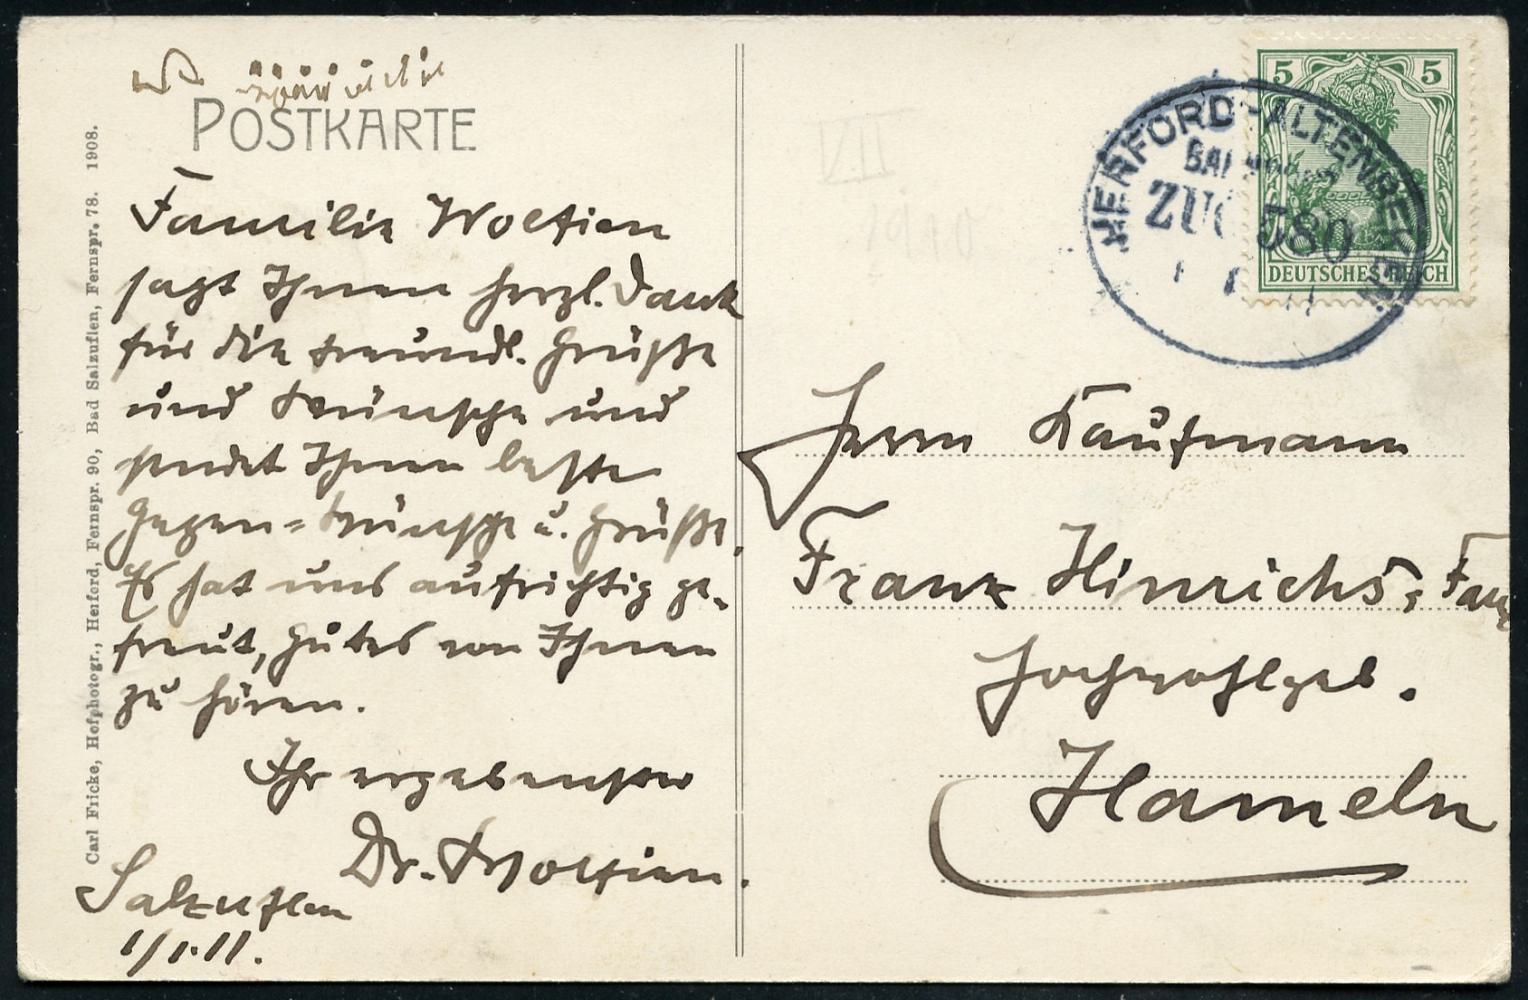 POSTKARTE
Familie Woltien
sagt Ihnen herzl. Dank
für die freundl. Grüße
und Wünsche und
sendet Ihnen beste
Gegen-Wünsche u. Grüße.
Es hat uns aufrichtig ge-
freut, Gutes von Ihnen
zu hören.
Ihr ergebenster
Dr. Woltien.
Salzuflen
1/1.11.
Carl Fricke, Hofphotogr., Herford, Fernspr. 90, Bad Salzuflen, Fernspr. 78. 1908.
5 5
DEUTSCHES REICH
HERFORD-ALTENBEKEN
ZUG 580
Herrn Kaufmann
Franz Hinrichs,
Hochwohlgeb.
Hameln